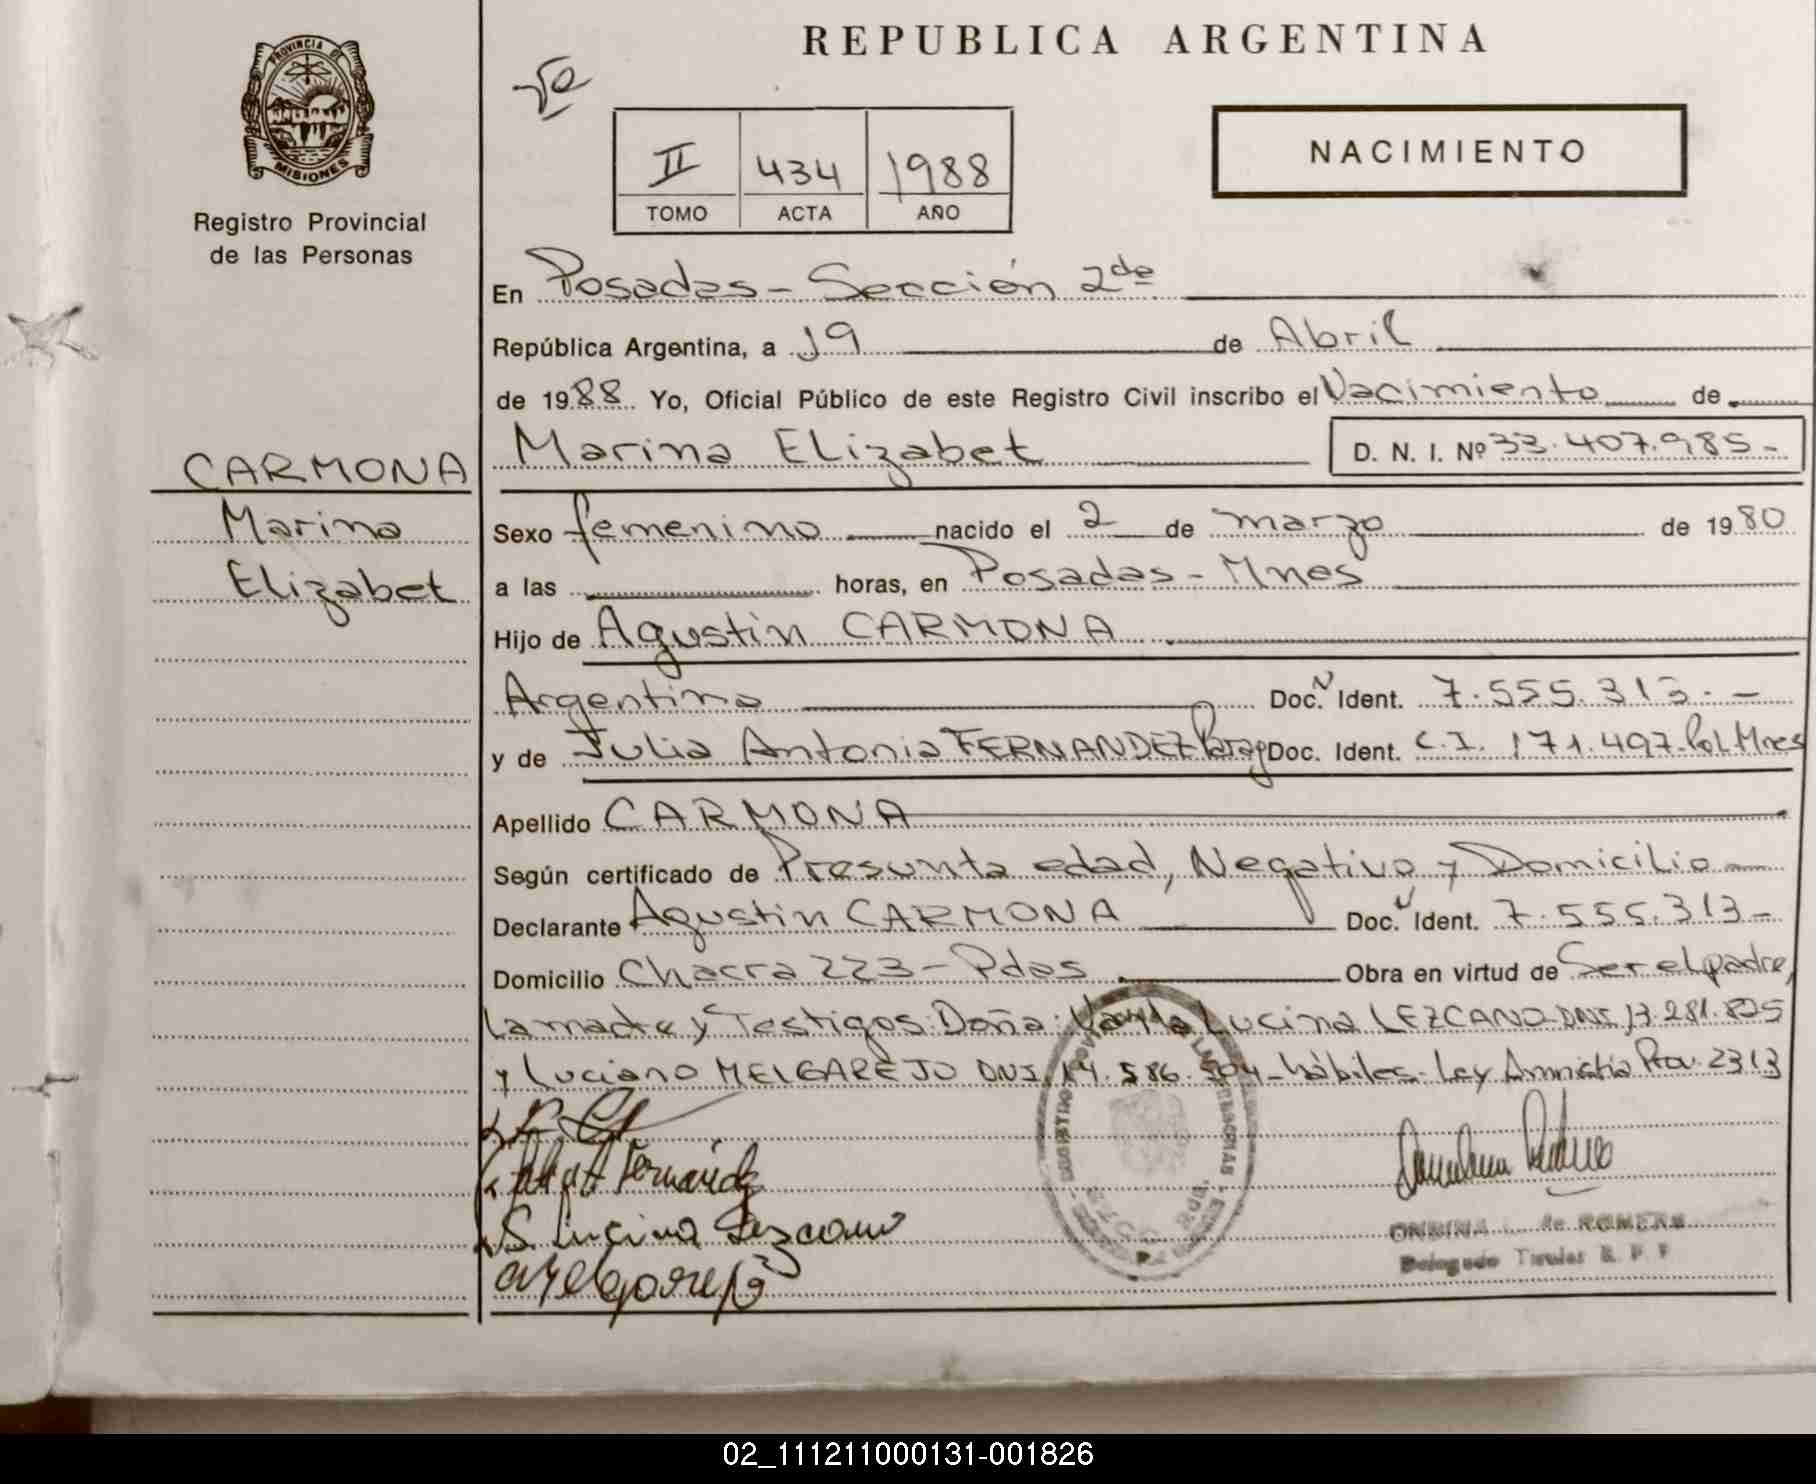 REPUBLICA ARGENTINA
PROVINCIA DE
MISIONES
Registro Provincial
de las Personas
II 434 1988
TOMO ACTA AÑO
NACIMIENTO
En Posadas - Sección 2da
República Argentina, a 19 de Abril
de 1988 Yo, Oficial Público de este Registro Civil inscribo el Nacimiento de
Marina Elizabet D. N. I. Nº 33.407.985-
CARMONA
Marina
Elizabet
Sexo femenino nacido el 2 de marzo de 1980
a las horas, en Posadas - Mnes
Hijo de Agustin CARMONA
Argentino Doc. N Ident. 7.555.313.-
y de Julia Antonia FERNANDEZ Parag Doc. Ident. C.I. 171.497-Pol. Mnes
Apellido CARMONA
Según certificado de Presunta edad, Negativo y Domicilio
Declarante Agustin CARMONA Doc. Ident. 7.555.313-
Domicilio Chacra 223 - Pdas Obra en virtud de Ser el padre,
La madre y Testigos: Doña Lucina LEZCANO DNI 13.281.825
y Luciano MELGAREJO DNI 14.586.504-hábiles- Ley Amnistia Prov. 2313
Fernández
S. Lucina Lezcano
Melgarejo
de ROMERO
Delegado Titular R. P. P.
02_111211000131-001826